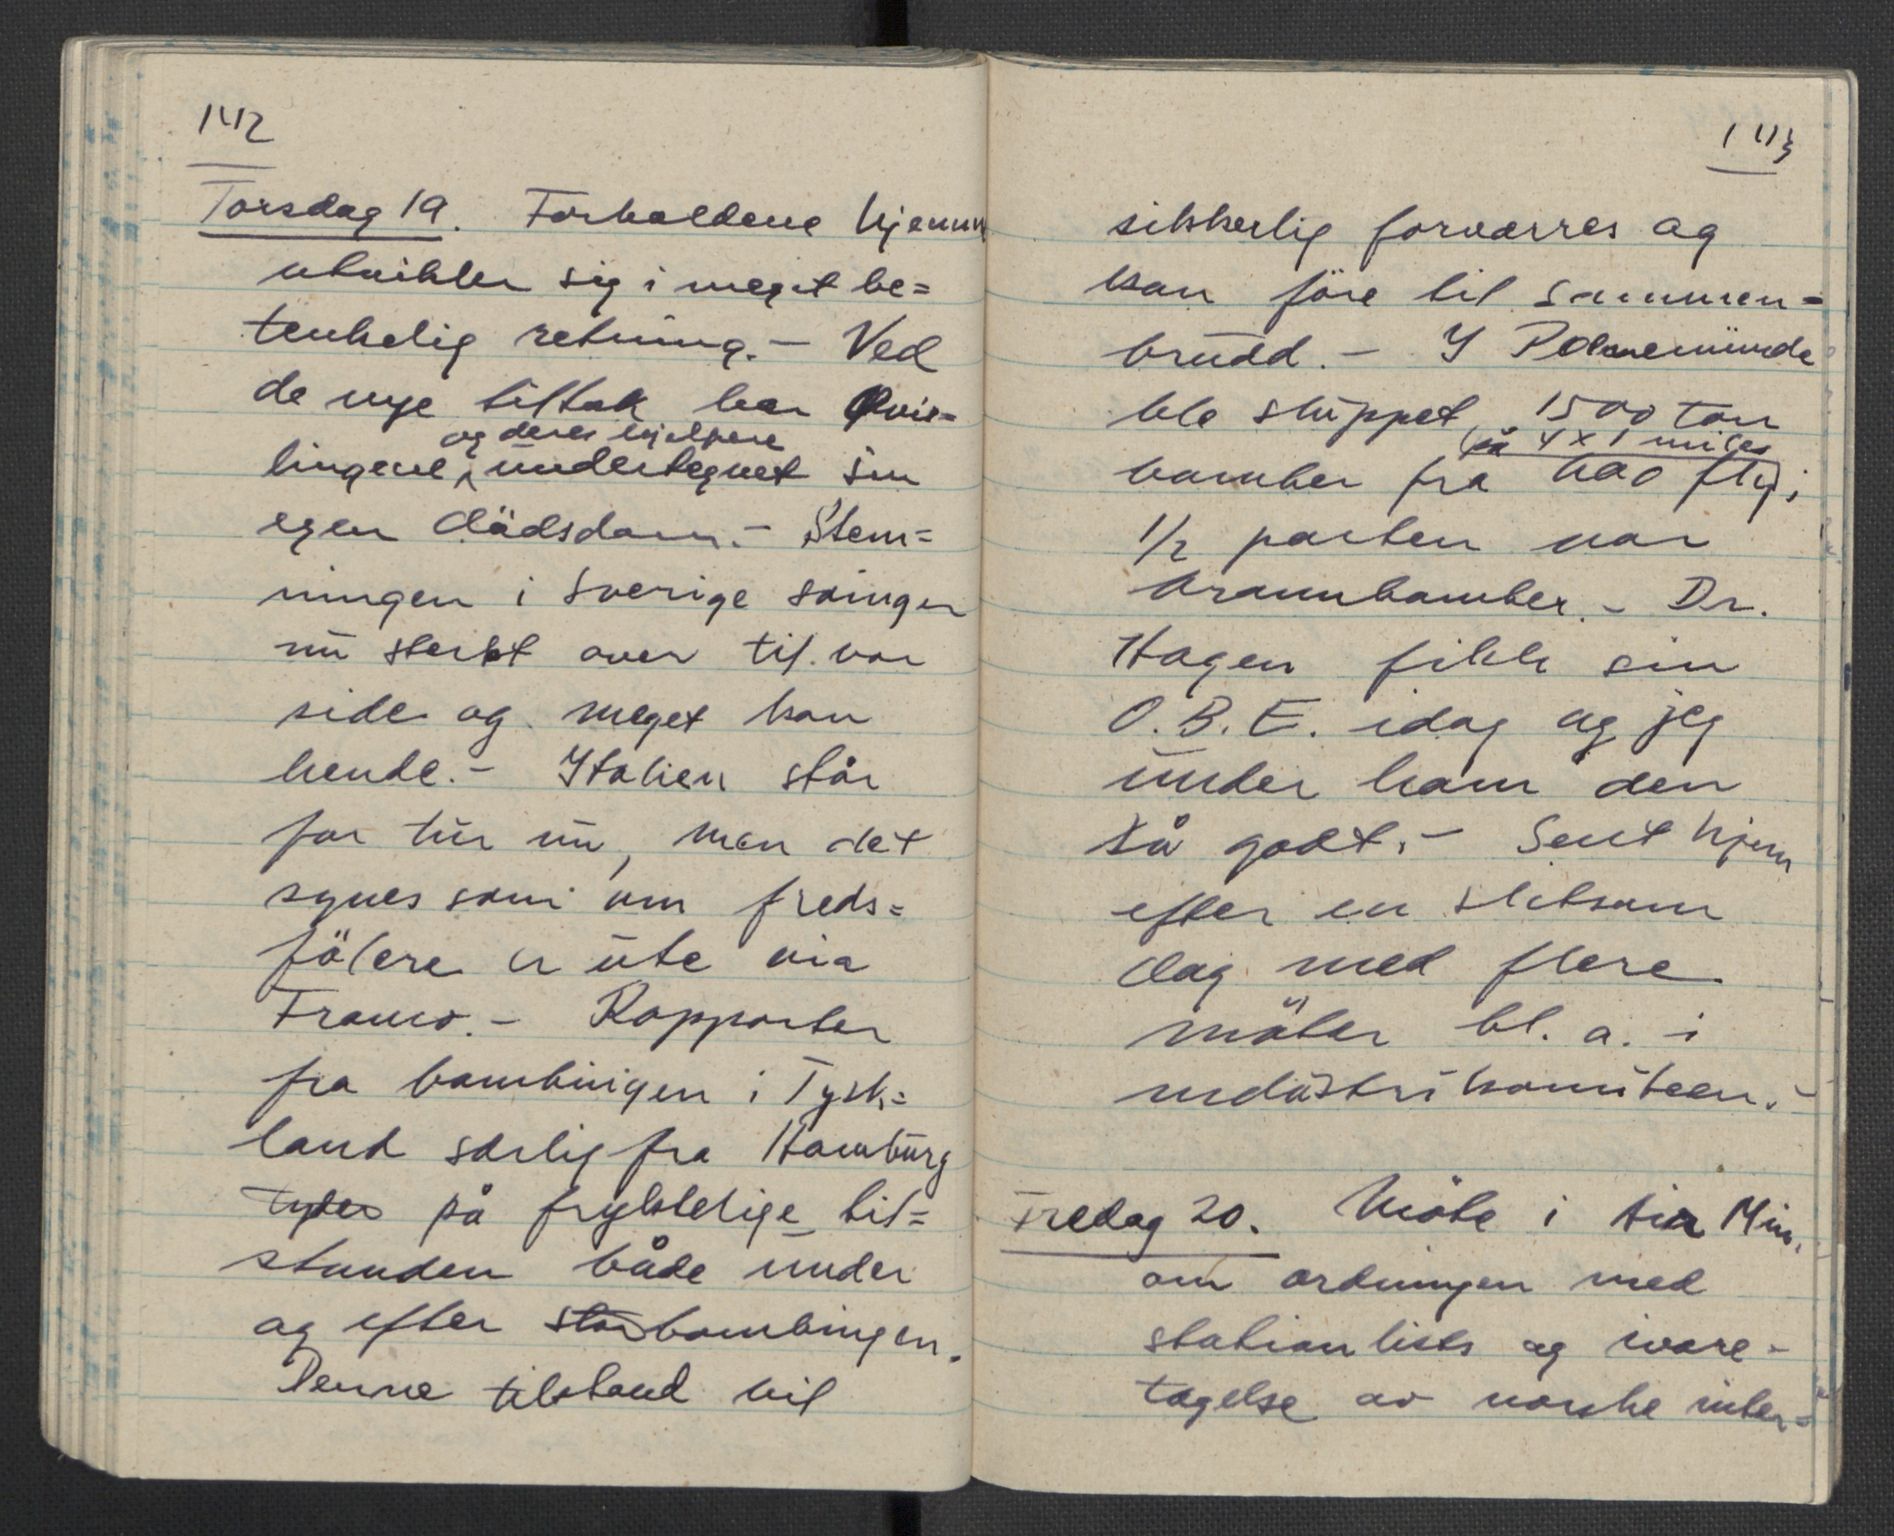 142
Torsdag 19. Forholdene hjemme
utvikler sig i meget be=
tenkelig retning. – Ved
de nye tiltak har Qvis=
og deres hjelpere
lingene undertegnet sin
egen dödsdom. – Stem=
ningen i Sverige svinger
nu sterkt over til vor
side og meget kan
hende. – Italien står
for tur nu, men det
synes som om freds=
fölere er ute via
Franco. – Rapporter
fra bombingen i Tysk=
land særlig fra Hamburg
tyder på fryktelige til=
standen både under
og efter storbombingen.
Denne tilstand vil
143
sikkerlig forværres og
kan före til sammen=
brudd. – I Peenemünde
ble sluppet 1500 ton
(på 4 x 1 miles
bomber fra 600 fly;
1/2 parten var
brannbomber. – Dr.
Hagen fikk sin
O.B.E. idag og jeg
under ham den
så godt. – Sent hjem
efter en slitsom
dag med flere
möter bl. a. i
industrikomiteen. –
Fredag 20. Möte i Air Min.
om ordningen med
station lists og ivare-
tagelse av norske inter=